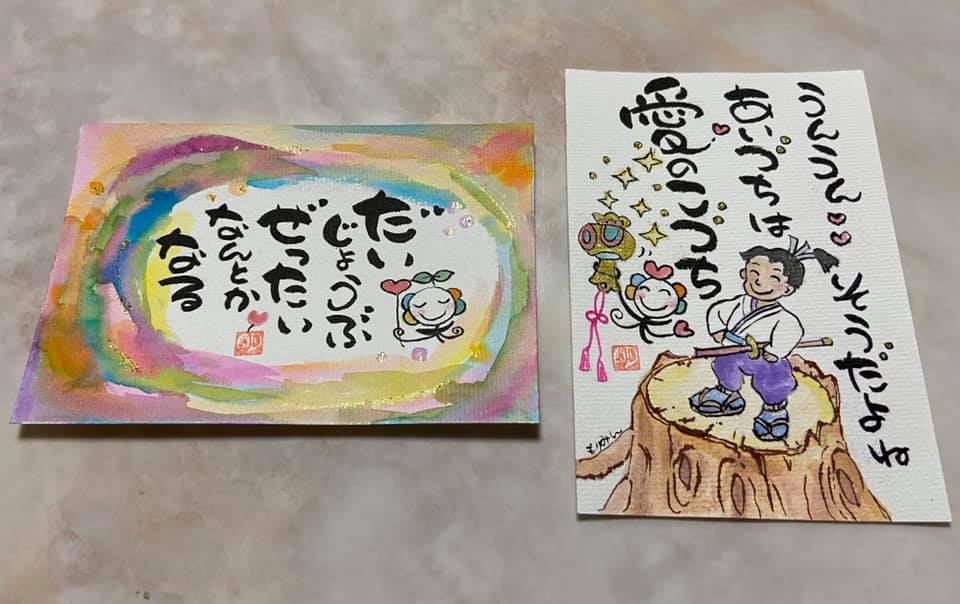 だい
じょうぶ
ぜったい
なんとか
なる
うんうん
そうだよね
あいづちは
愛のこづち